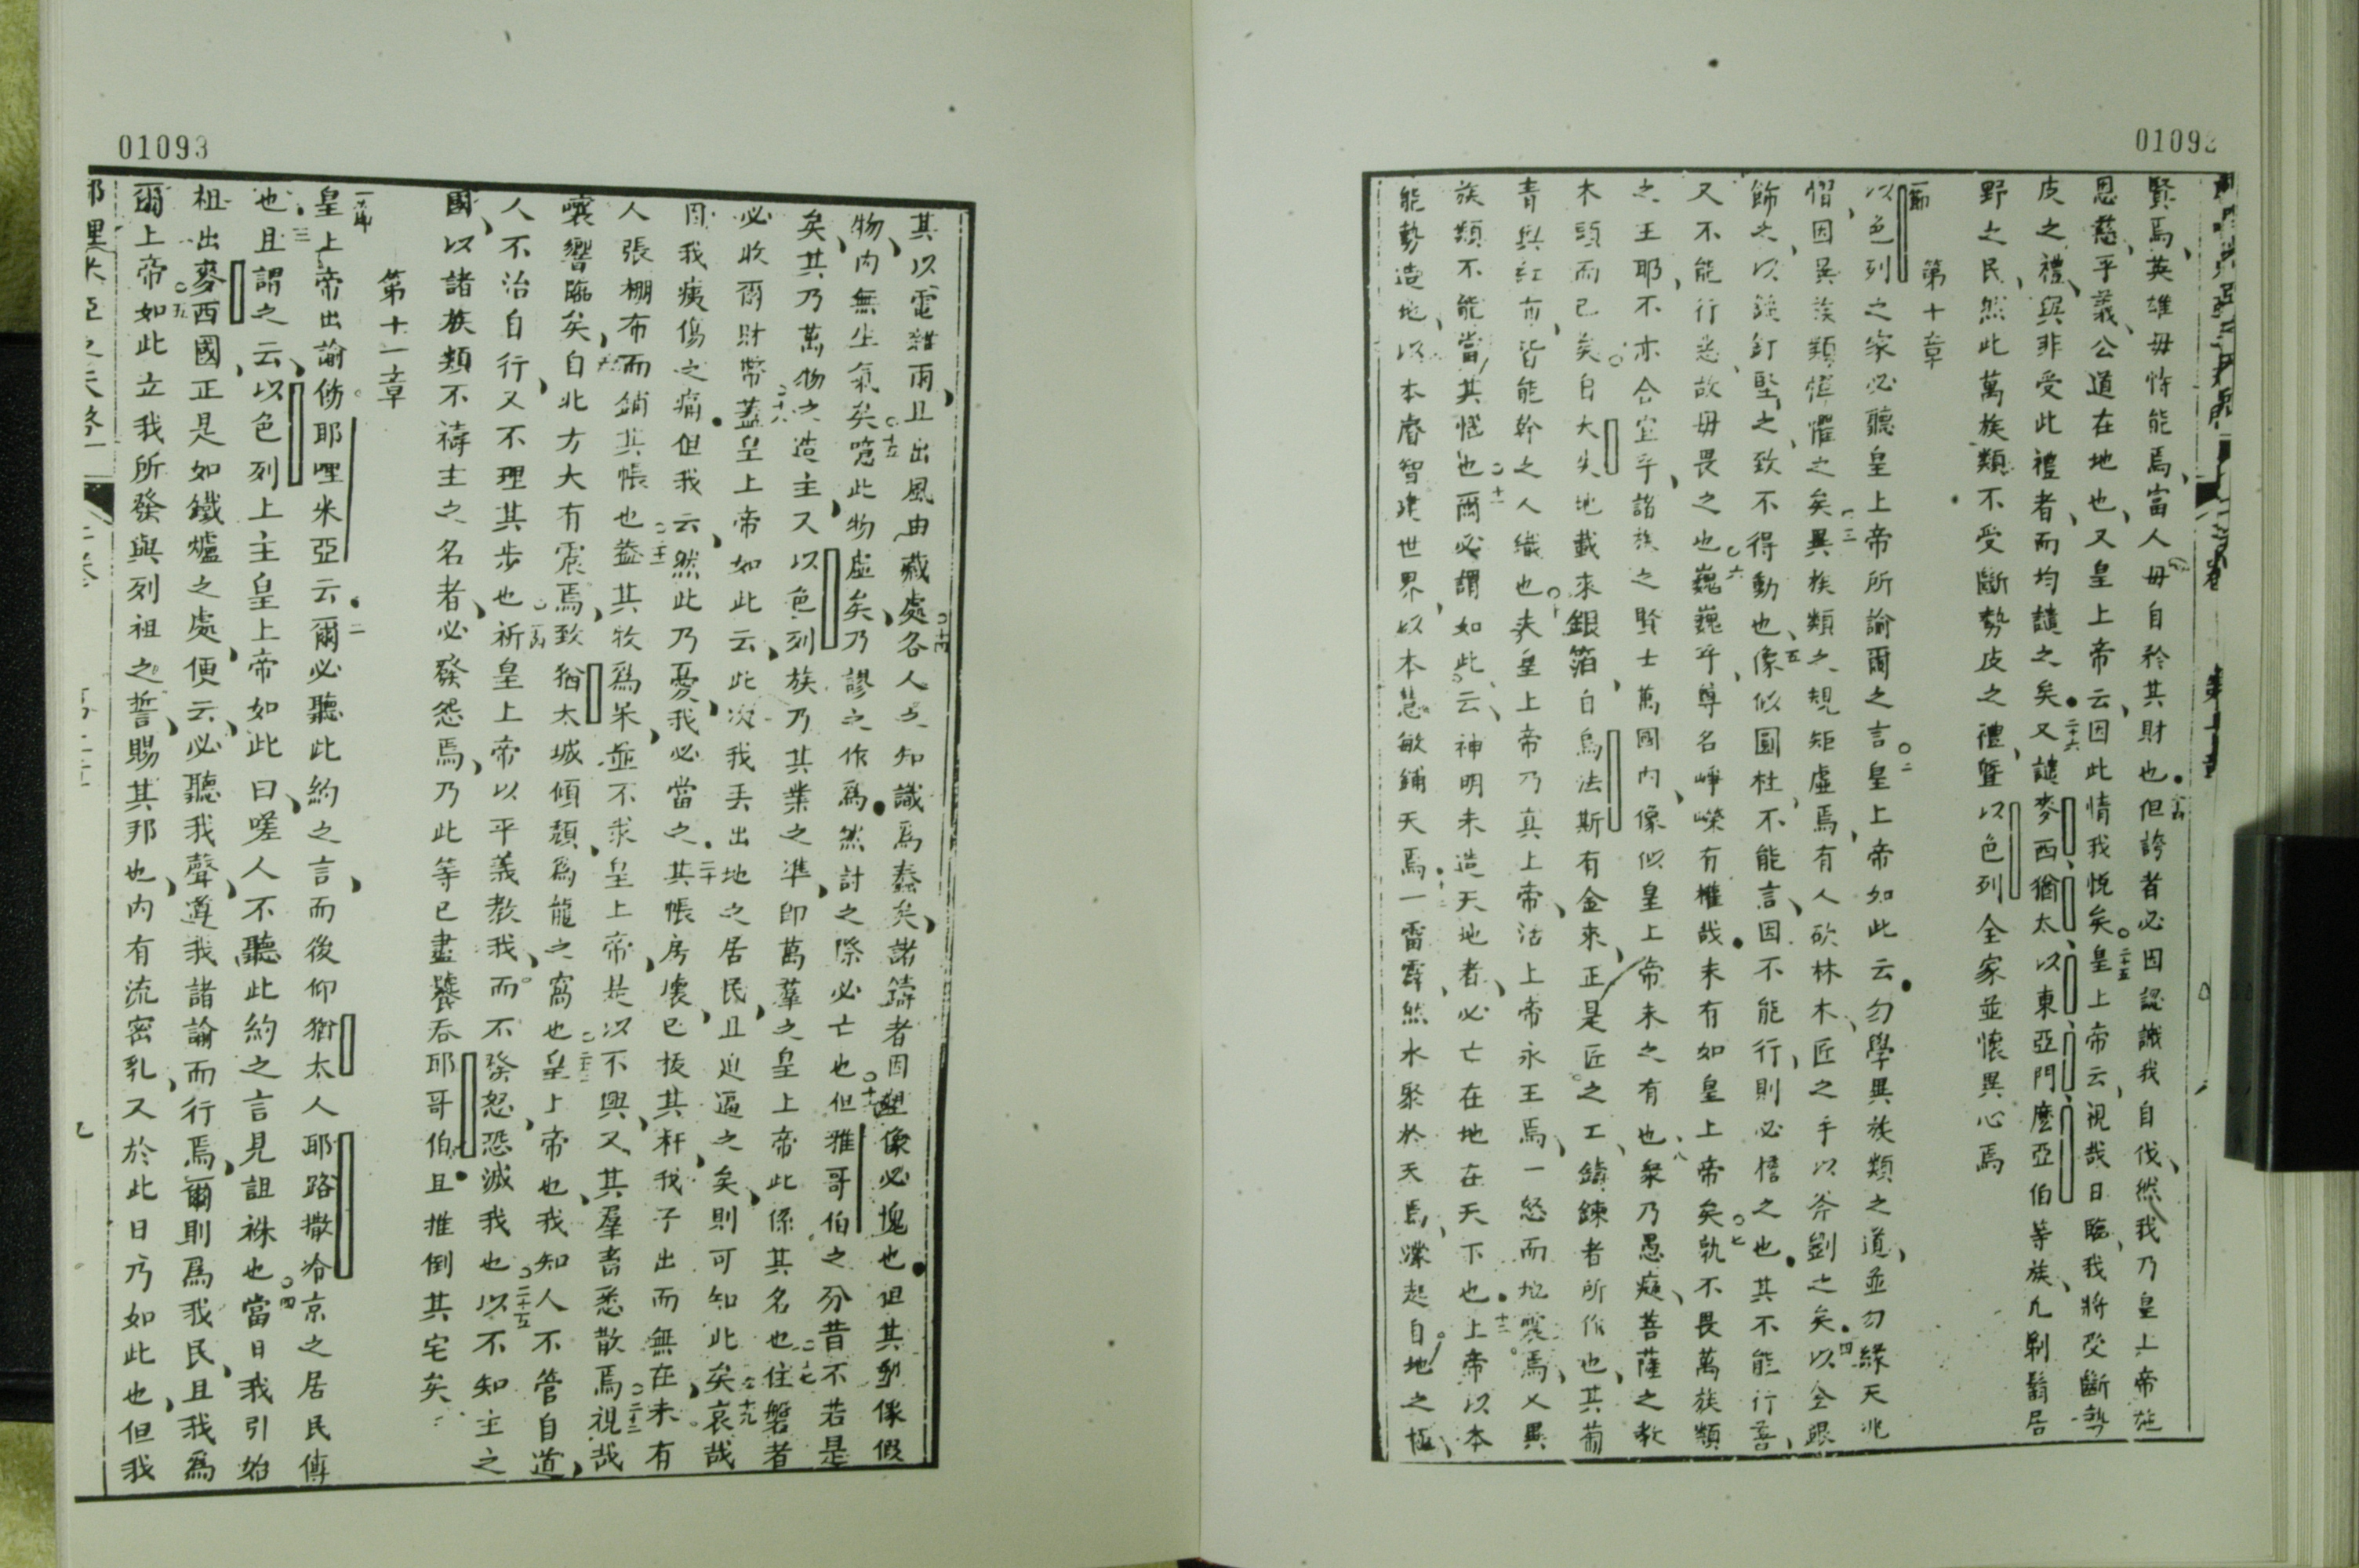 01092
賢焉、英雄毋恃能焉、富人毋自矜其財也但誇者必因認識我自伐、然我乃皇上帝施
恩慈、乎義、公道在地也、又皇上帝云、因此情我悅矣。二十五皇上帝云、視哉日臨、我將受斷勢
皮之禮、與非受此禮者、而均譴之矣二十六又譴麥西、猶太、以東、亞門、麼亞伯等族、凡剃鬚居
野之民、然此萬族類不受斷勢皮之禮、暨以色列全家並懷異心焉
第十章
一節
以色列之家必聽皇上帝所諭爾之言○二皇上帝如此云勿學異族類之道、並勿緣天兆
慴因異族類憚懼之矣○三異族類之規矩虛焉、有人砍林木、匠之手以斧劉之矣四以金銀
飾之、以錘釘堅之、致不得動也、五像似圓柱、不能言、因不能行、則必擔之也其不能行善、
又不能行惡、故毋畏之也○六巍巍乎、尊名崢嶸有權哉未有如皇上帝矣○七孰不畏萬族類
之王耶、不亦合宜乎、諸族之賢士萬國內、像似皇上帝未之有也、八衆乃愚癡、菩薩之教
木頭而已矣。自大失地載來銀箔、自烏法斯有金來、正是匠之工、鑄鍊者所作也、其葡
青與紅布、皆能幹之人織也○十夫皇上帝乃真上帝、活上帝永王焉、一怒而地震焉、又異
族類不能當其怒也○十一爾必謂如此云、神明未造天地者、必亡在地在天下也十二上帝以本
能勢造地、以本睿智建世界、以本慧敏鋪天焉十三一雷霹、然水聚於天焉、霧起自地之極、
01093
其以電雜雨、且出風由藏處○十四各人之知識爲蠢矣、諸鑄者因塑像必愧也但其鄄像假
物、內無生氣矣○十五噫此物虛矣、乃謬之作爲然討之際必亡也○十六但雅哥伯之分昔不若是
矣、其乃萬物之造主、又以色列族乃其業之準、即萬羣之皇上帝此係其名也○十七住磐者
必收爾財幣○十八蓋皇上帝如此云、此次我丟出地之居民、且迫逼之矣、則可知此矣○十九哀哉
因我痍傷之痛但我云、然此乃憂、我必當之二十其帳房壞、已拔其杆、我子出而無在、未有
人張棚布而鋪其帳也○二十一蓋其牧爲呆、並不求皇上帝是以不興、又其羣畜悉散焉○二十二視哉
嚷響臨矣、自北方大有震焉、致猶太城傾頹爲龍之窩也○二十三皇上帝也、我知人不管自道、
人不治自行、又不理其步也○二十四祈皇上帝以平義教我、而不發怒、恐滅我也○二十五以不知主之
國、以諸族類不禱主之名者、必發怨焉、乃此等已盡饕吞耶哥伯且推倒其宅矣
第十一章
一節
皇上帝出諭傍耶哩米亞云二爾必聽此約之言、而後仰猶太人耶路撒冷京之居民傳
也三且謂之云、以色列上主皇上帝如此曰、嗟人不聽此約之言見詛袾也○四當日我引始
祖出麥西國、正是如鐵爐之處、便云、必聽我聲、遵我諸諭而行焉、爾則爲我民、且我爲
爾上帝○五如此立我所發與列祖之誓、賜其邦也、內有流密乳、又於此日乃如此也、但我
耶里米亞之天啓